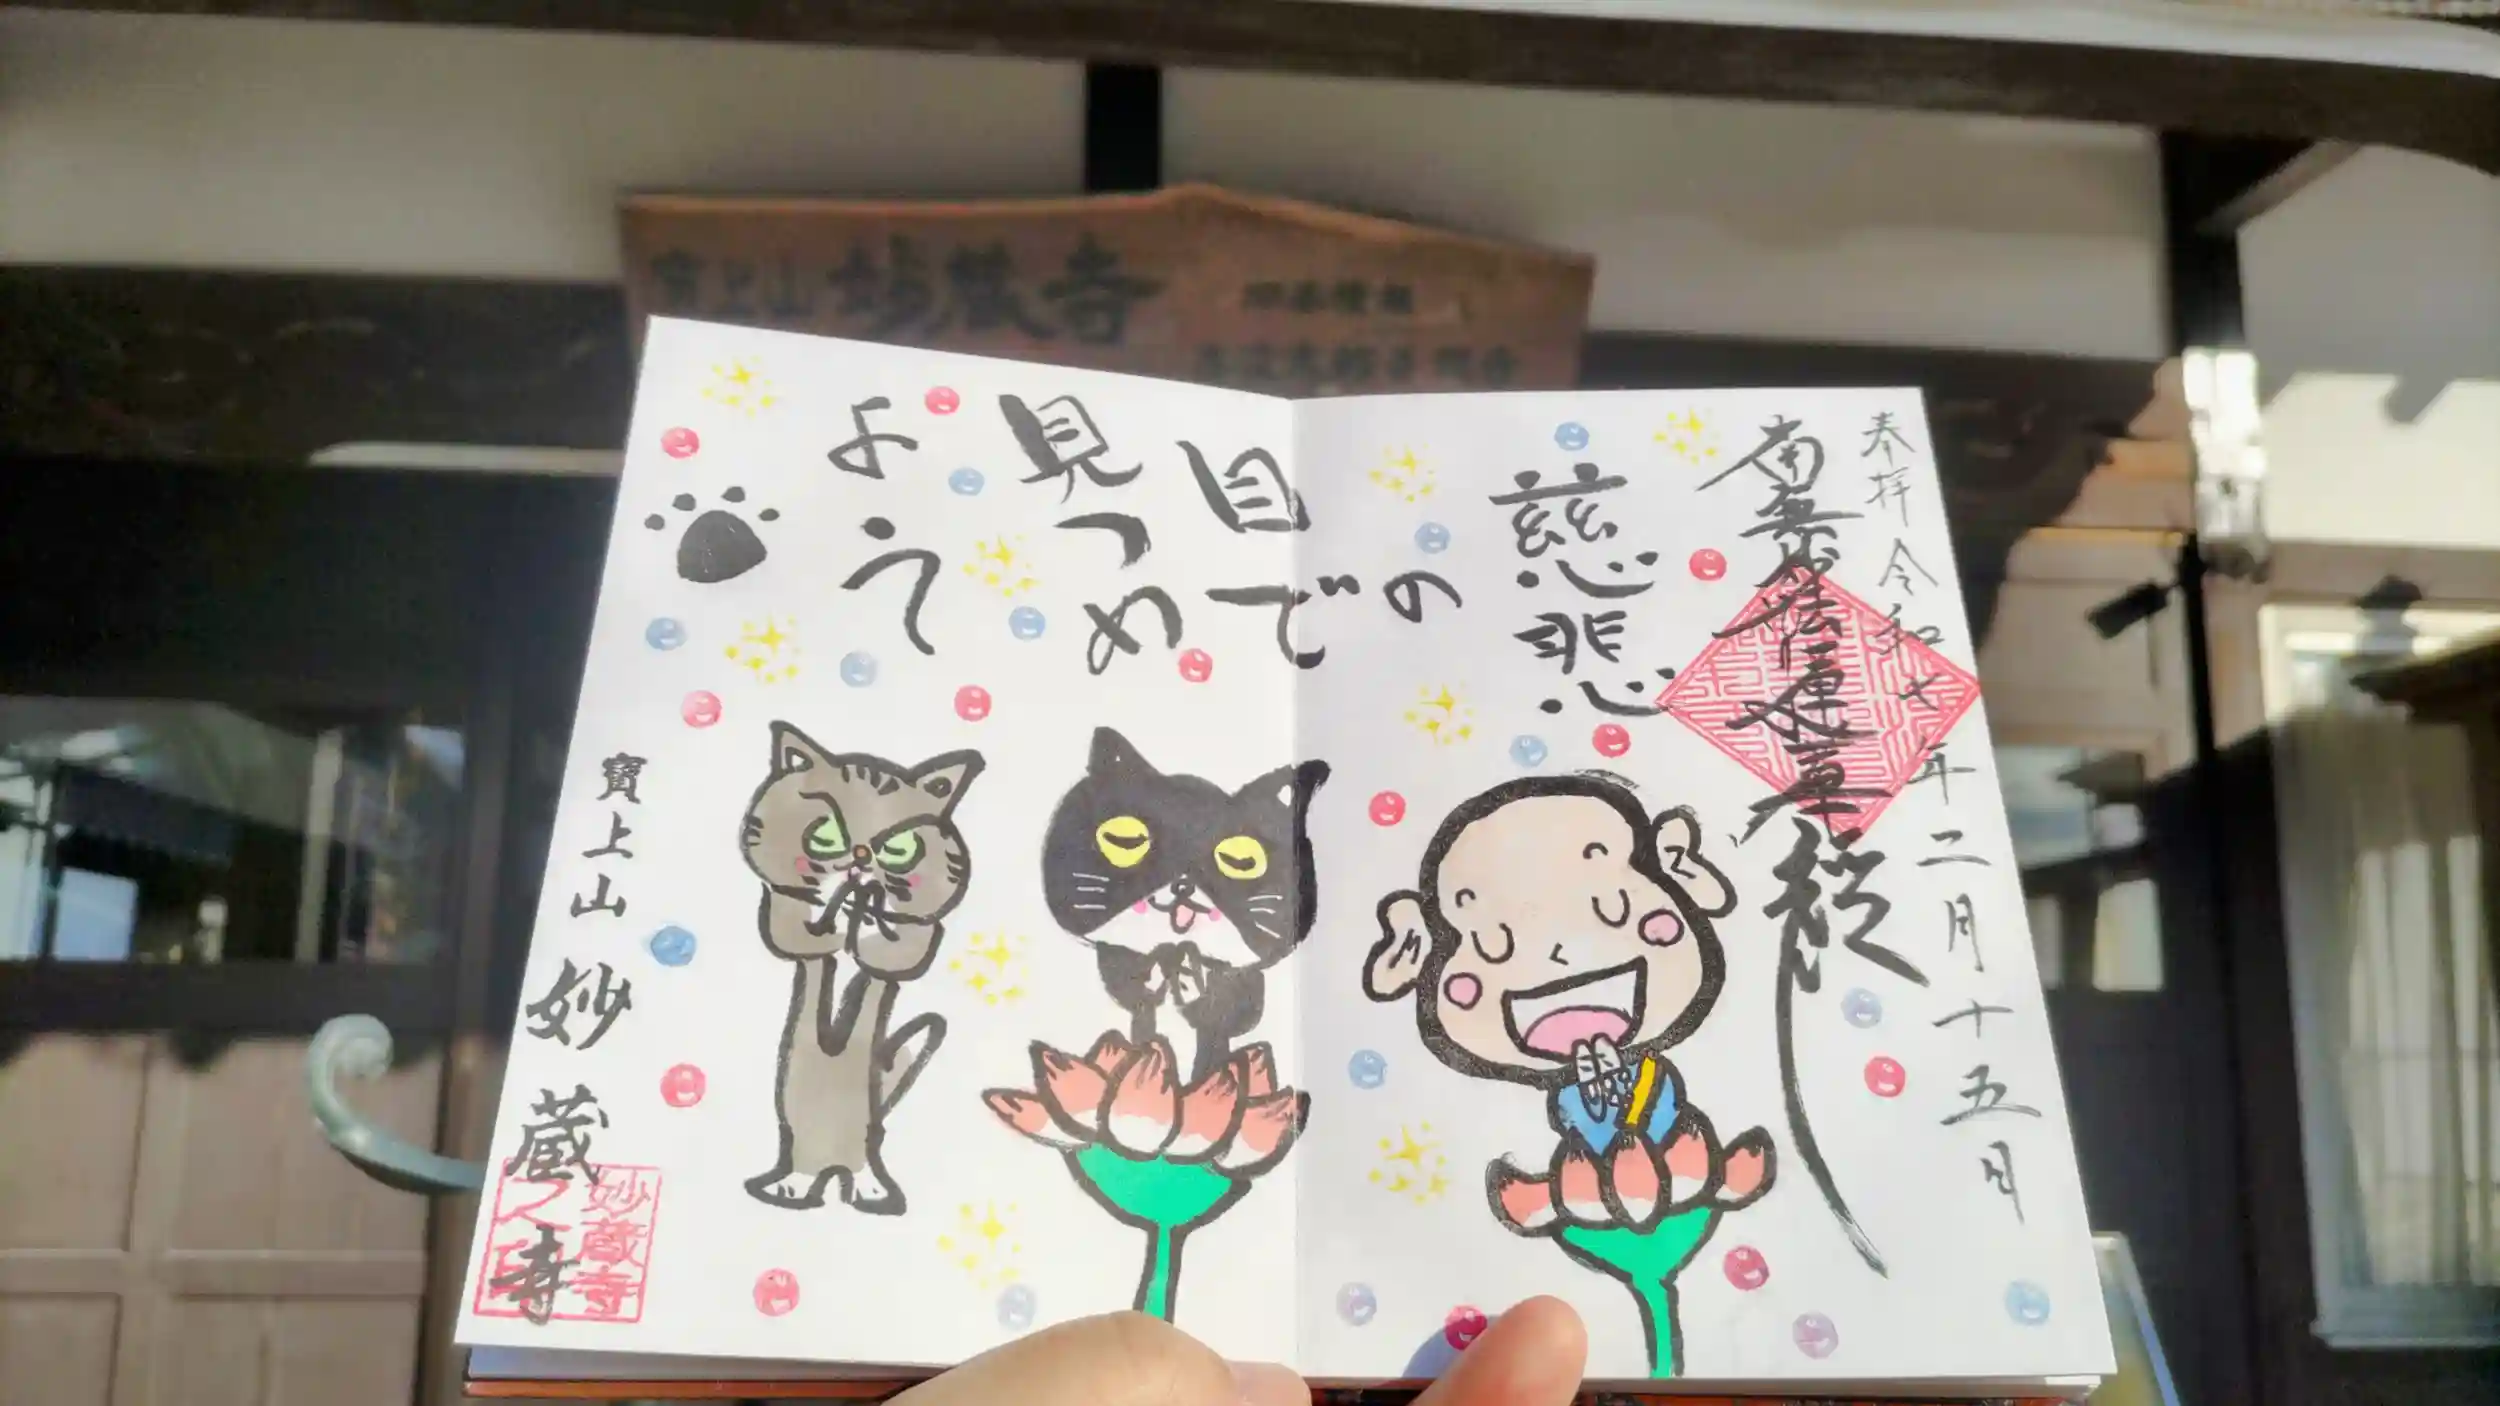 寳上山 妙蔵寺
奉拝 令和七年二月十五日
南無妙法蓮華経
慈悲の
目で
見つめ
よう
寳上山 妙蔵寺
妙蔵寺
之印